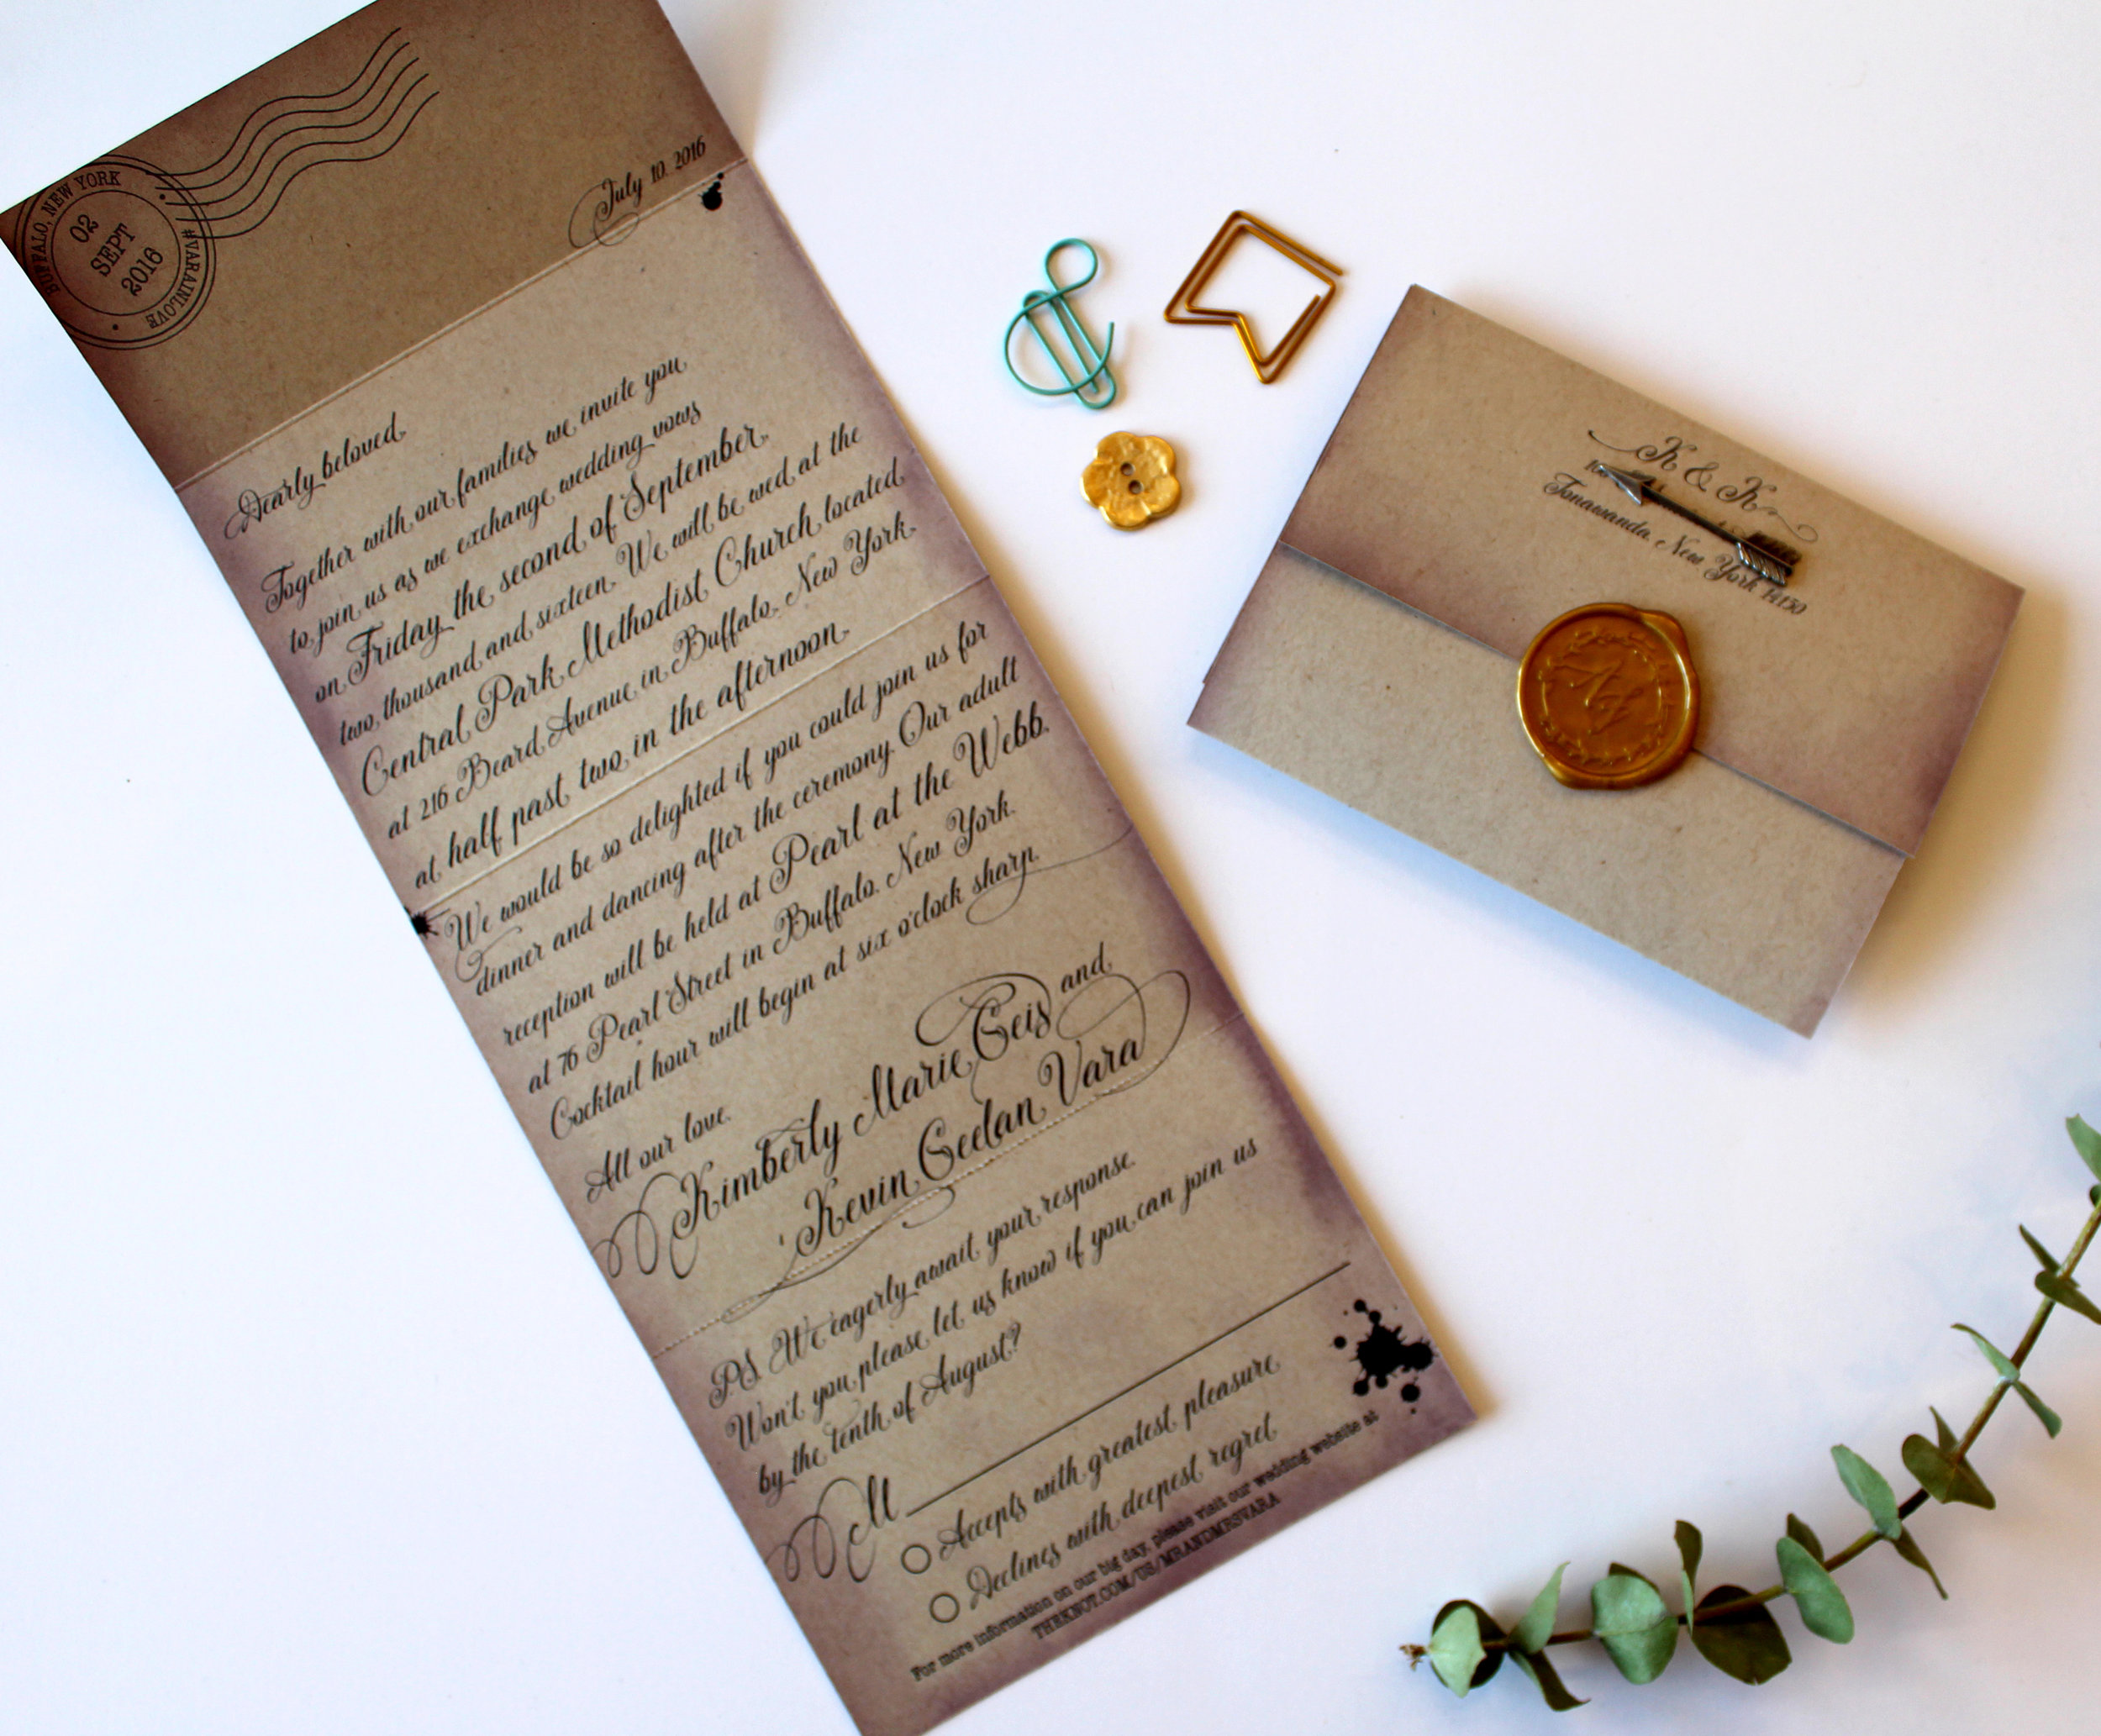 BUFFALO, NEW YORK
02
SEPT
2016
#VARAINLOVE
July 10, 2016
Dearly beloved,
Together with our families we invite you
to join us as we exchange wedding vows
on Friday the second of September,
two thousand and sixteen. We will be wed at the
Central Park Methodist Church located
at 216 Beard Avenue in Buffalo, New York.
at half past two in the afternoon.
We would be so delighted if you could join us for
dinner and dancing after the ceremony. Our adult
reception will be held at Pearl at the Webb.
at 76 Pearl Street in Buffalo, New York.
Cocktail hour will begin at six o'clock sharp.
All our love,
Kimberly Marie Geis and
Kevin Geelan Vara
PS. We eagerly await your response.
Won't you please let us know if you can join us
by the tenth of August?
M
Accepts with greatest pleasure
Declines with deepest regret
For more information on our big day, please visit our wedding website at
THEKNOT.COM/US/MRANDMRSVARA
K & K
Tonawanda, New York 14150